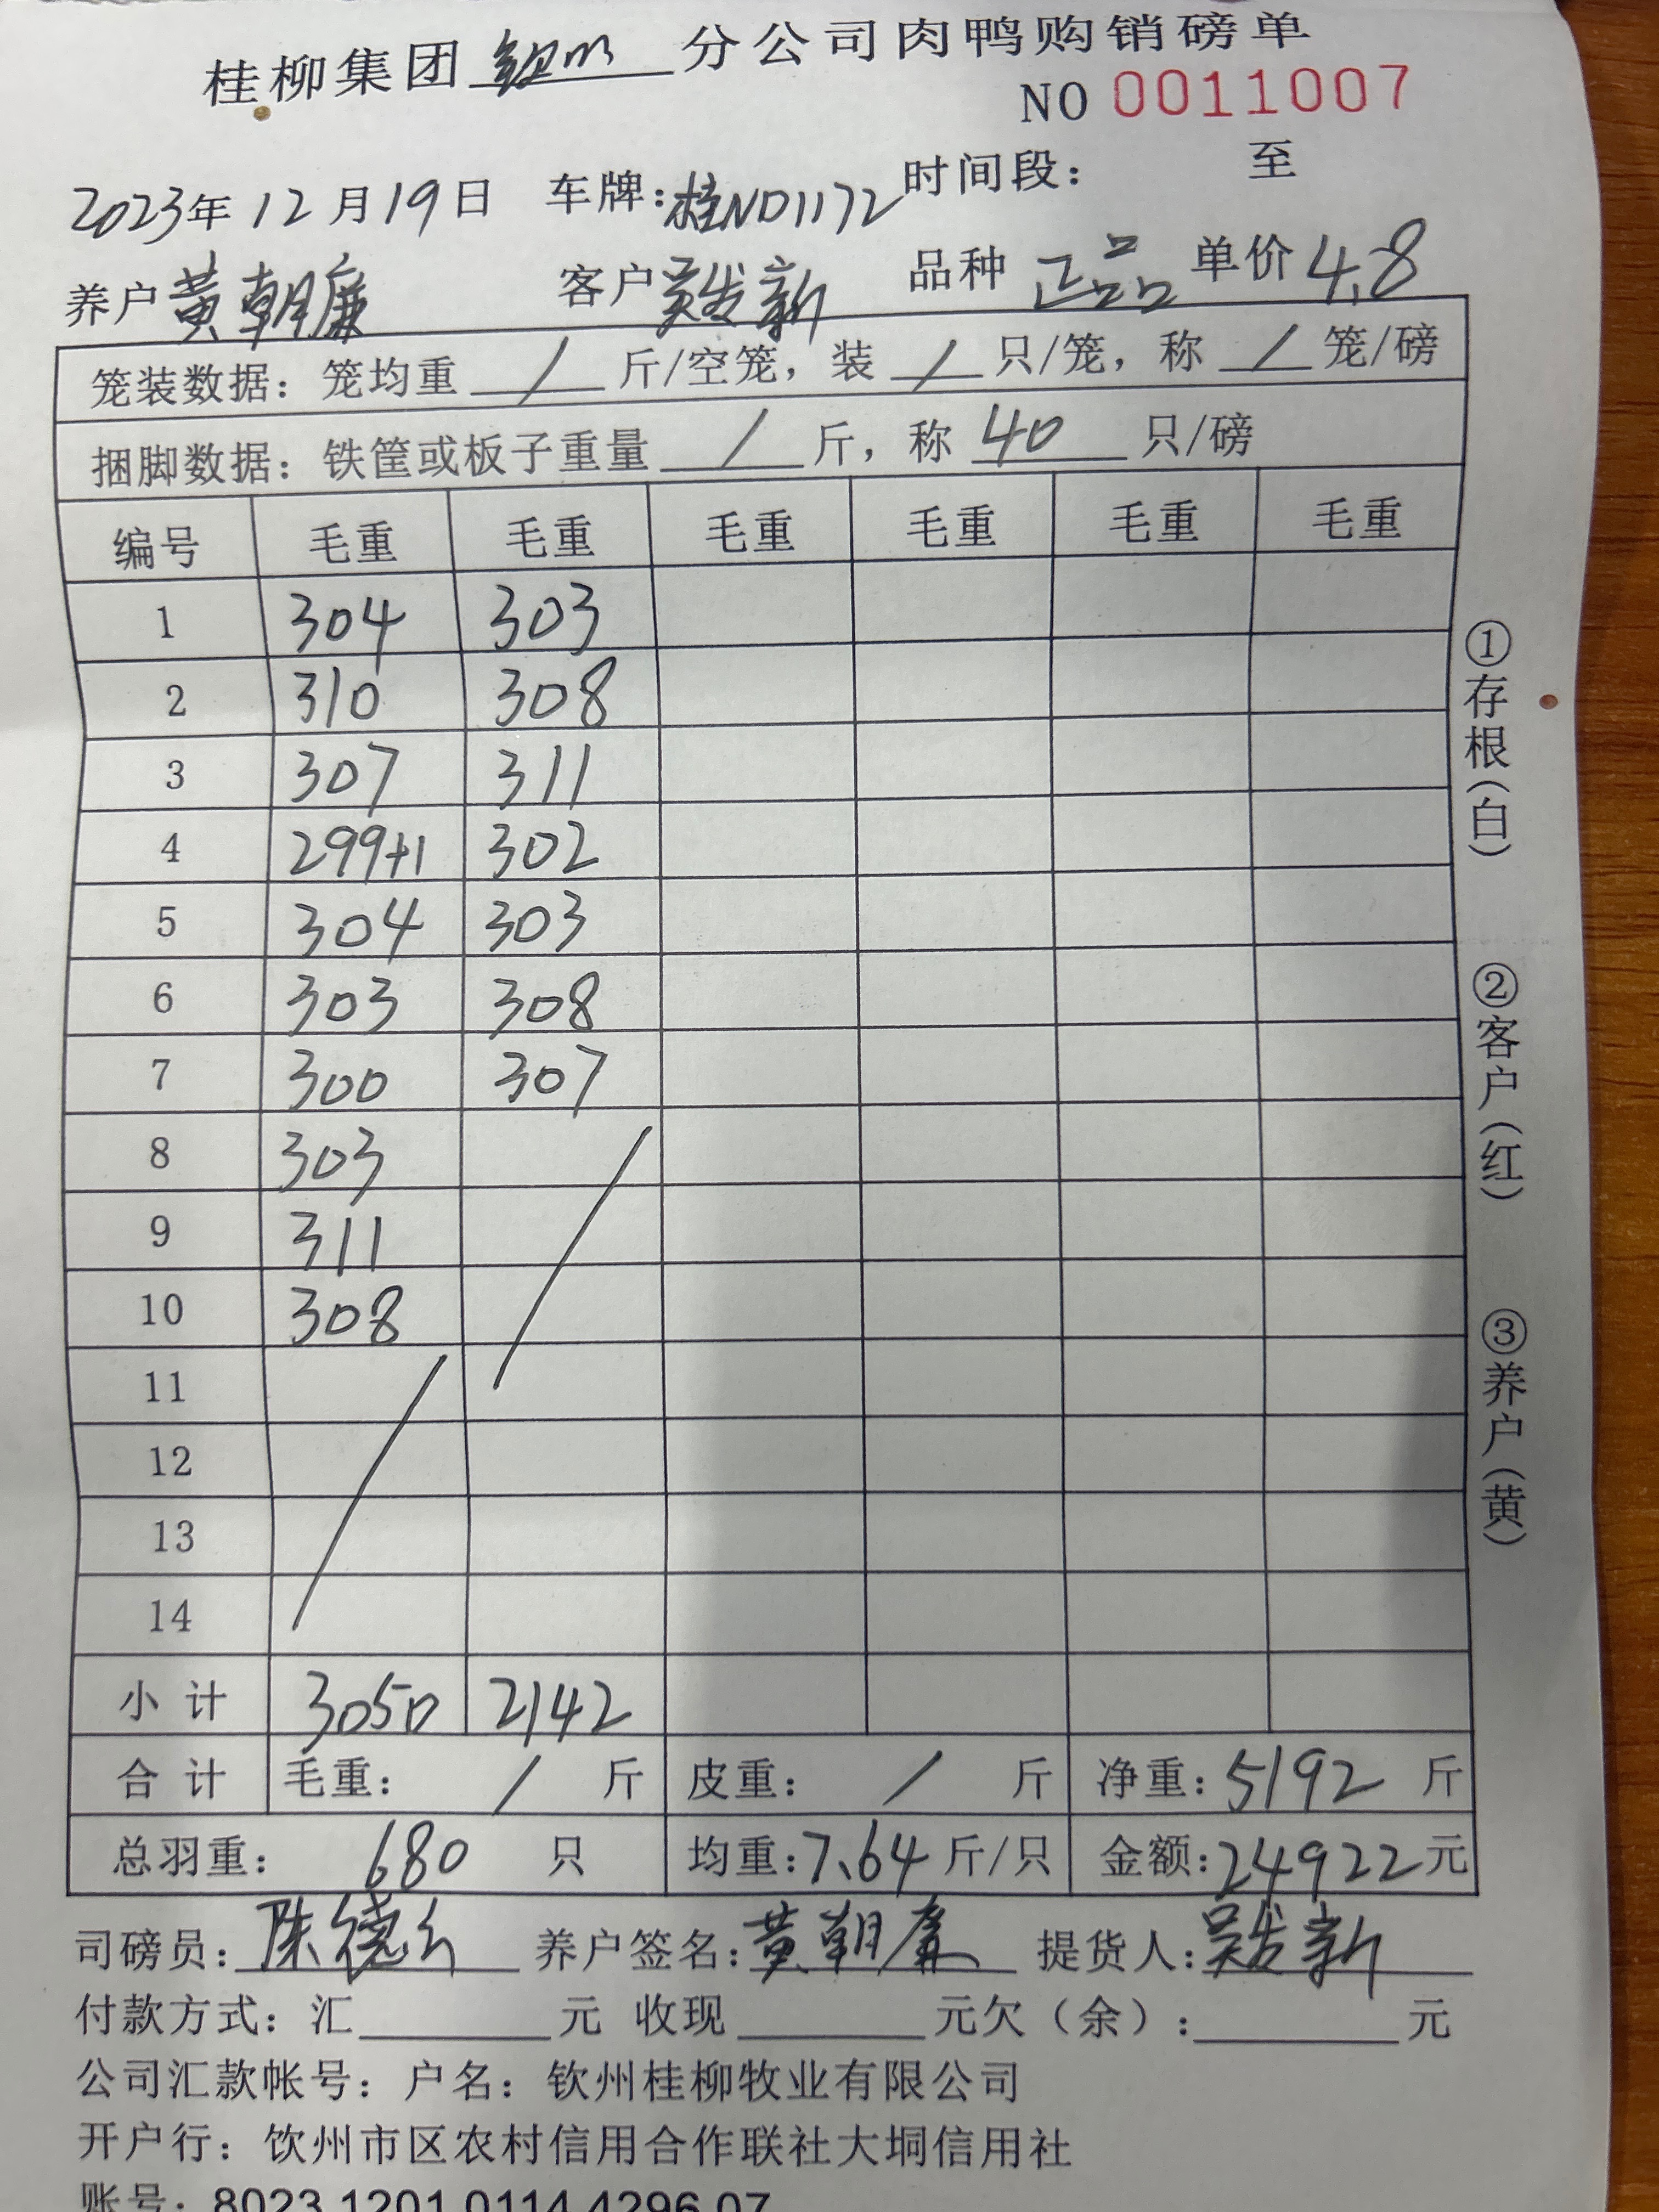 桂柳集团钦州分公司肉鸭购销磅单
NO 0011007
2023年12月19日 车牌:桂ND1172 时间段: 至
养户 黄朝廉 客户 吴发新 品种 正品 单价 4.8
笼装数据: 笼均重 / 斤/空笼, 装 / 只/笼, 称 / 笼/磅
捆脚数据: 铁筐或板子重量 / 斤, 称 40 只/磅
编号 毛重 毛重 毛重 毛重 毛重 毛重
1 304 303
2 310 308
3 307 311
4 299+1 302
5 304 303
6 303 308
7 300 307
8 303
9 311
10 308
11
12
13
14
小计 3050 2142
合计 毛重: / 斤 皮重: / 斤 净重: 5192 斤
总羽重: 680 只 均重: 7.64 斤/只 金额: 24922元
司磅员: 陈德 养户签名: 黄朝廉 提货人: 吴发新
付款方式: 汇 元 收现 元欠(余): 元
公司汇款帐号: 户名: 钦州桂柳牧业有限公司
开户行: 钦州市区农村信用合作联社大垌信用社
账号: 8023 1201 0114 4296 07
①存根(白) ②客户(红) ③养户(黄)